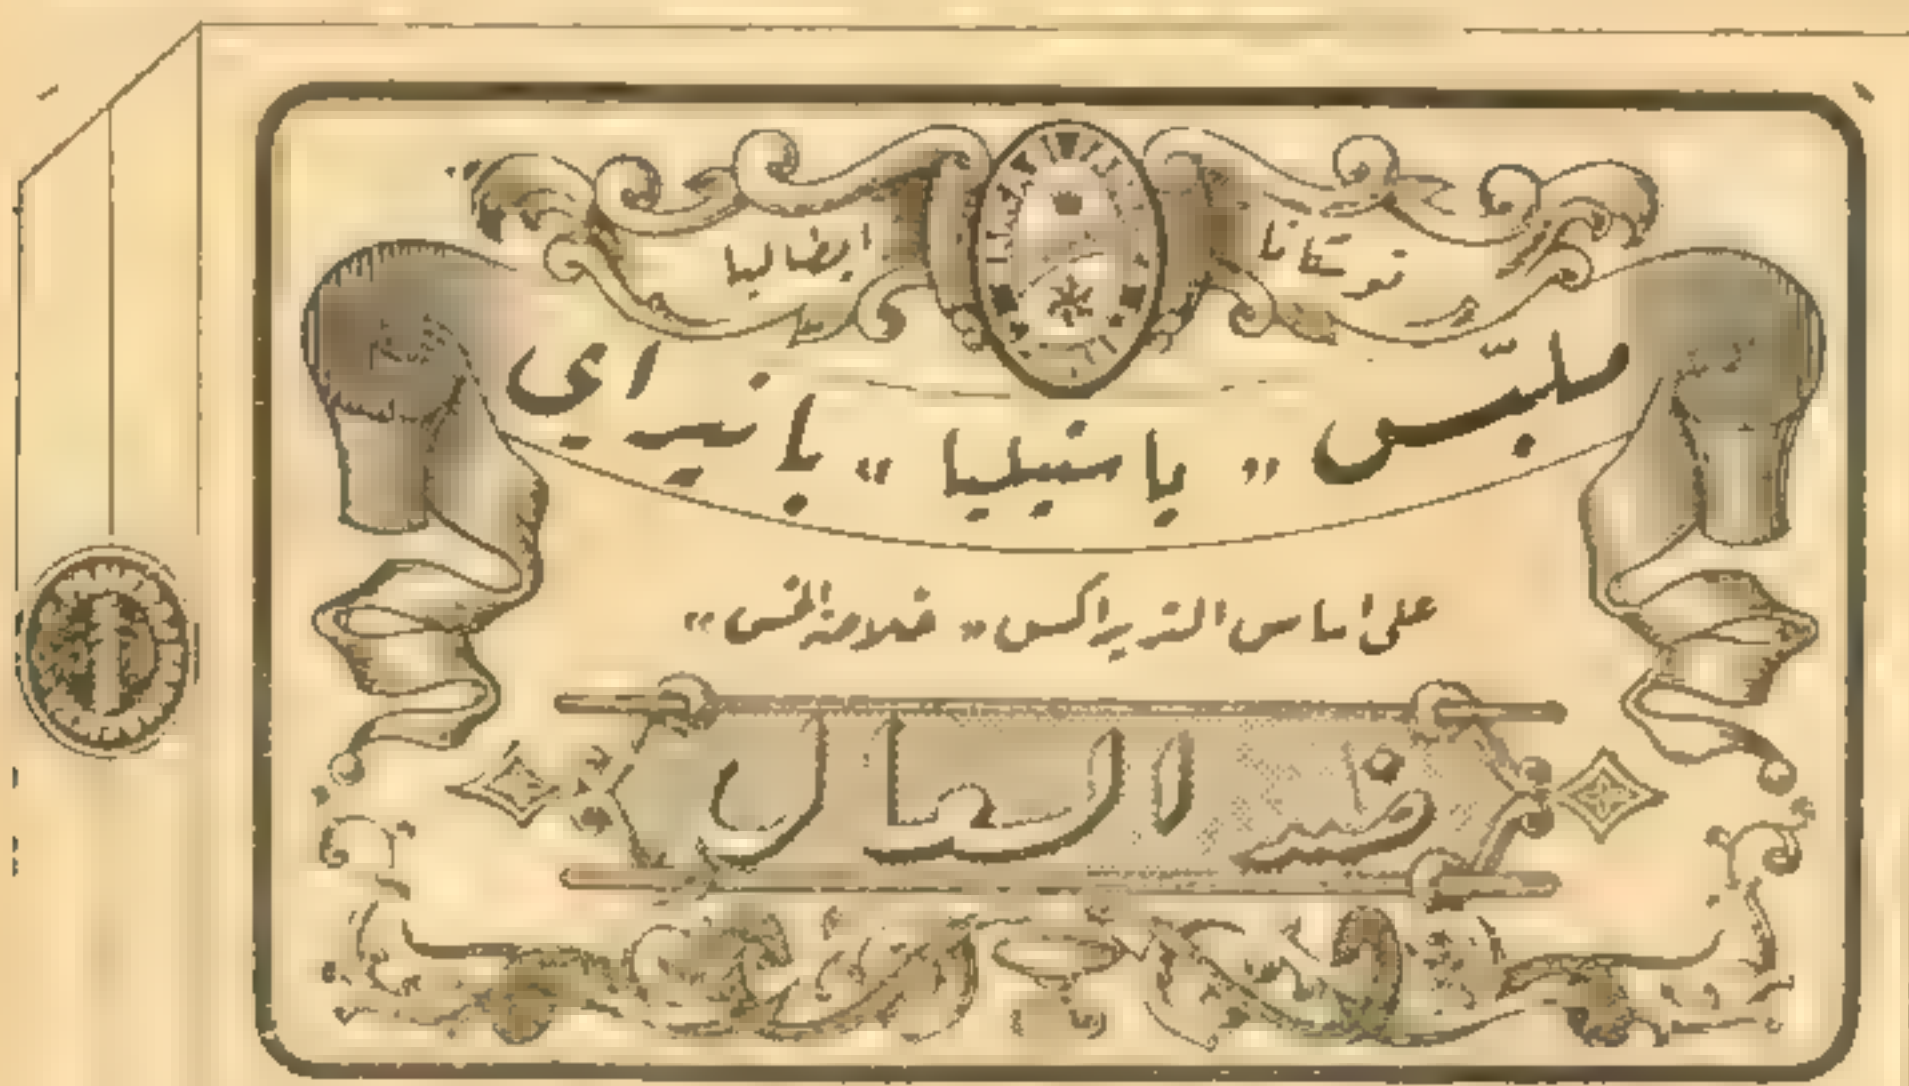 توستانا ايطاليا
ملبّس "ياستيليا" پانيراي
على اساس التريداكس "خلاصة الخس"
ضد السعال